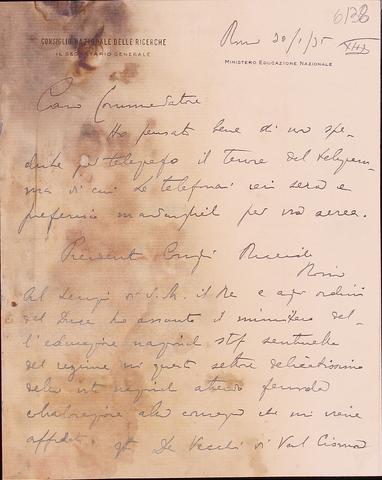 6138
CONSIGLIO NAZIONALE DELLE RICERCHE
IL SEGRETARIO GENERALE
Roma 28/1/35
XIII
MINISTERO EDUCAZIONE NAZIONALE
Caro Commendatore
Ho pensato bene di non spe-
dirle per telegrafo il tenore del telegram-
ma di cui Le telefonai ieri sera e
preferisco mandarglielo per via aerea.
Presidente Consiglio Ricerche
Roma
Al servizio di S.M. il Re e agli ordini
del Duce ho assunto il ministero del-
l'educazione nazionale stop sentinella
del regime in questo settore delicatissimo
della vita nazionale attendo
collaborazione alla consegna che mi viene
affidata De Vecchi di Val Cismon